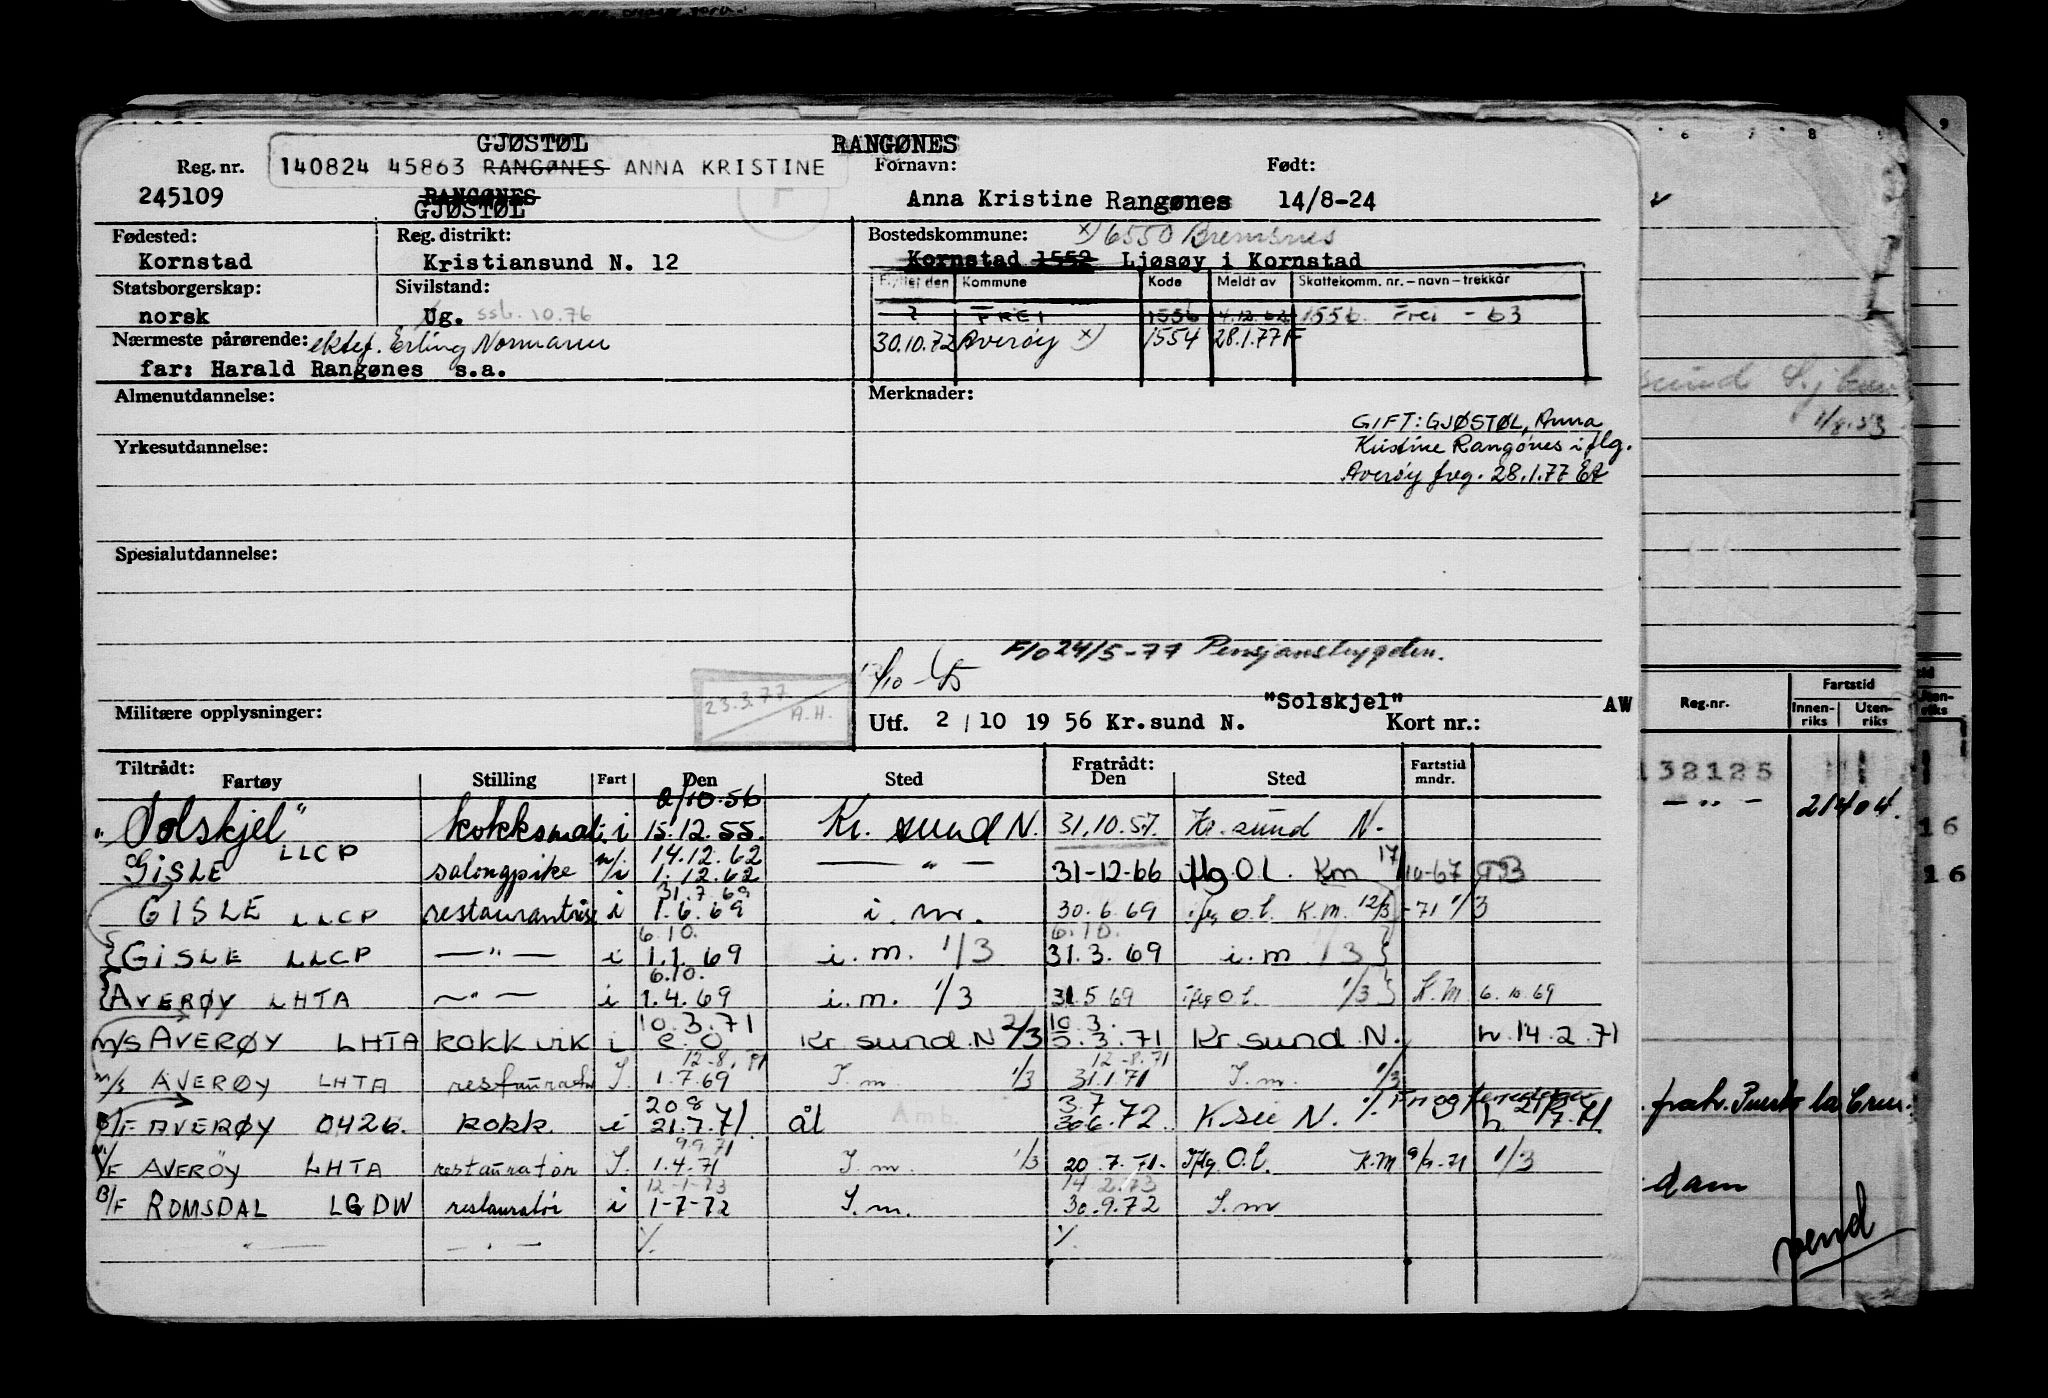 GJØSTØL RANGØNES
Reg. nr. 140824 45863 RANGØNES ANNA KRISTINE Fornavn: Født:
245109 RANGØNES Anna Kristine Rangønes 14/8-24
GJØSTØL
Fødested: Reg. distrikt: Bostedskommune: x) 6550 Bremsnes
Kornstad Kristiansund N. 12 Kornstad 1552 Ljøsøy i Kornstad
Statsborgerskap: Sivilstand: Flyttet den Kommune Kode Meldt av Skattekomm. nr. – navn – trekkår
norsk Ug. ssb. 10.76 ? FREI 1556 4.12.62 1556. Frei - 63
Nærmeste pårørende: ektef. Erling Normann 30.10.72 Averøy x) 1554 28.1.77 F
far: Harald Rangønes s.a.
Almenutdannelse: Merknader:
GIFT: GJØSTØL, Anna
Yrkesutdannelse: Kristine Rangønes iflg.
Averøy freg. 28.1.77
Spesialutdannelse:
F/o 24/5-77 Pensjonstrygden.
23.3.77
A.H.
"Solskjel" AW
Militære opplysninger: Utf. 2 / 10 19 56 Kr.sund N. Kort nr.:
Tiltrådt: Fratrådt:
Fartøy Stilling Fart Den Sted Den Sted Fartstid mndr.
2/10.56
"Solskjel" i 15.12.55. Kr. sund N. 31.10.57. Kr. sund N.
14.12.62
GISLE LLCP salongpike n/i 1.12.62 — " — 31-12-66 iflg O.l. Km 17/10-67
31.7.69
GISLE LLCP i 1.6.69 i. m. 30.6.69 iflg O.l. K.M. 12/3 -71 1/3
6.10. 6.10.
GISLE LLCP — " — i 1.1.69 i. m. 1/3 31.3.69 i. m 1/3
6.10.
AVERØY LHTA — " — i 1.4.69 i. m. 1/3 31.5 69 iflg O.l. 1/3 K.M 6.10.69
10.3.71 10.3.
M/S AVERØY LHTA kokk vik i e.o Kr sund N 2/3 3.71 Kr sund N. h. 14.2.71
12-8.71 12-8.71
M/S AVERØY LHTA restauratør I. 1.7.69 I. m. 1/3 31.1.71 I. m. 1/3
20 8 3.7
B/F AVERØY 0426. kokk i 21.7.71. ål 30.6.72 K.su N.
9.9.71
M/F AVERØY LHTA restauratør I. 1.4.71 I. m. 1/3 20.7.71. Iflg O.l. K.M 9/9-71 1/3
12-1-73 14 2.73
B/F ROMSDAL LGDW restauratør i 1-7-72 I. m. 30.9.72 I. m
— " — — " — ./. ./.
6 7 8 9
1/8.53
Reg.nr. Fartstid
Innen-riks Uten-riks
132125
— " — 21404.
16
16
fratr. Puerto la Cruz.
dam
vend